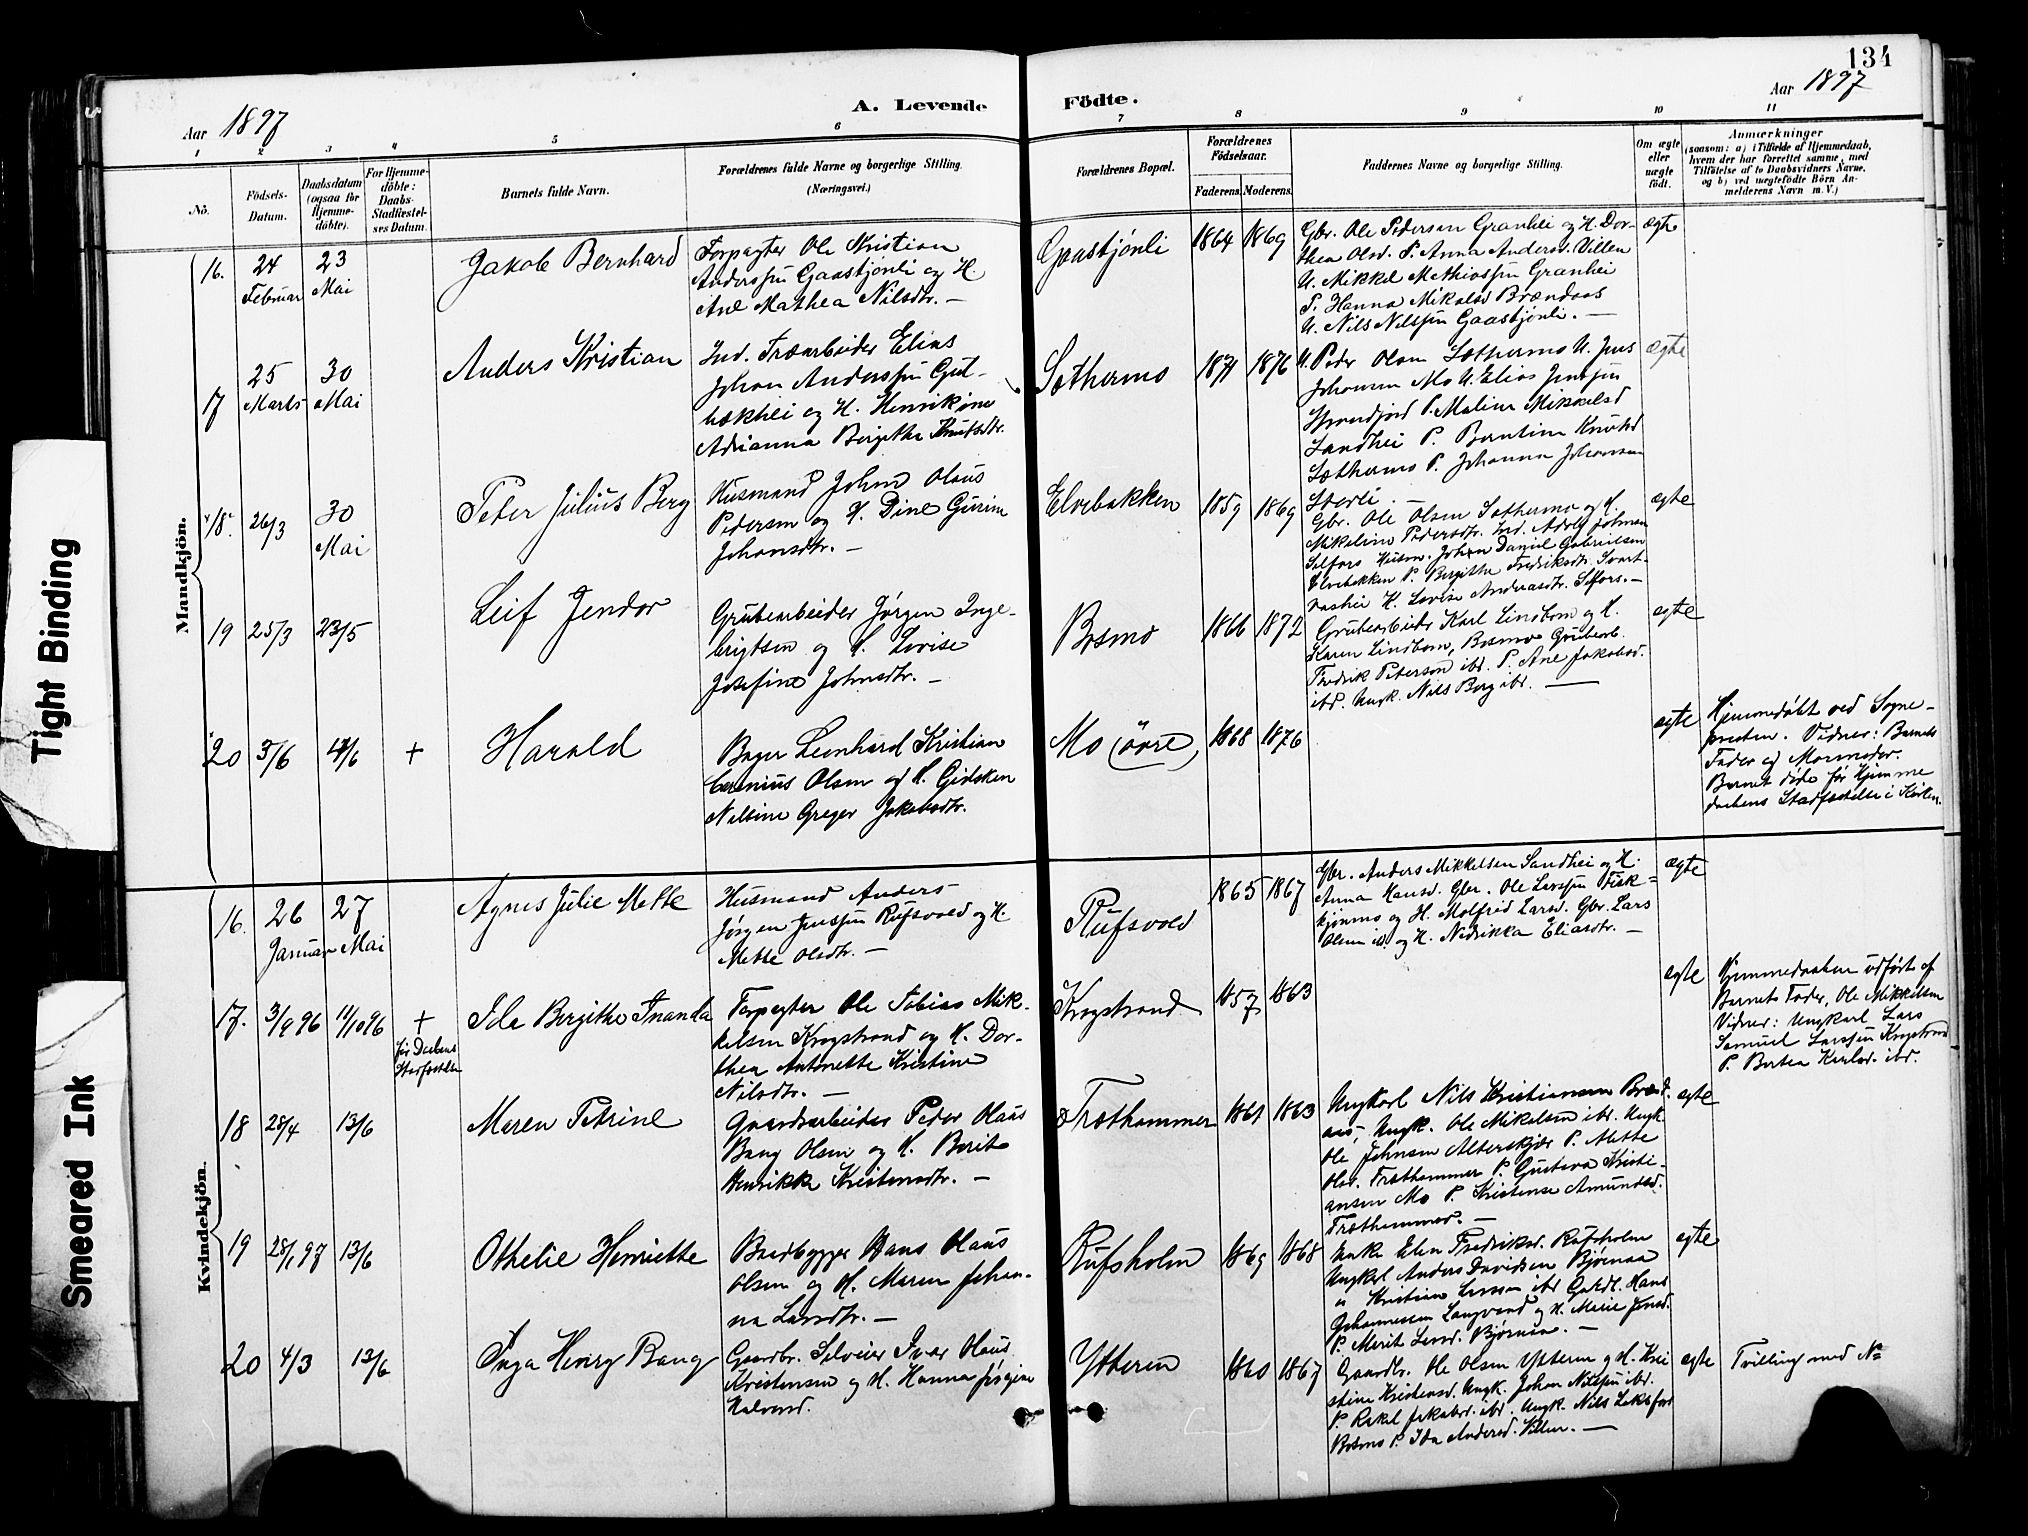 134
Aar 1897
A. Levende Födte.
Aar 1897
1 2 3 4 5 6 7 8 9 10 11
No.
Födsels-
Datum.
Daabsdatum
(ogsaa for
Hjemme-
döbte).
For Hjemme-
döbte:
Daabs-
Stadfæstel-
ses Datum.
Barnets fulde Navn.
Forældrenes fulde Navne og borgerlige Stilling.
(Næringsvei.)
Forældrenes Bopæl.
Forældrenes
Födselsaar.
Faderens. Moderens.
Faddernes Navne og borgerlige Stilling.
Om ægte
eller
uægte
födt.
Anmærkninger
(saasom: a) i Tilfælde af Hjemmedaab,
hvem der har forrettet samme, med
Tilföielse af to Daabsvidners Navne,
og b) ved uægtefödte Börn An-
melderens Navn m. V.)
Mandkjön.
16.
24
Februar
23
Mai
Jakob Bernhard
Forpagter Ole Kristian
Anderssen Gaastjønli og H.
Ane Mathea Nilsdtr. —
Gaastjønli
1864 1869
Gbr. Ole Pedersen Granhei og H. Dor-
thea Olsd. P. Anna Andersd. Villen
U. Mikkel Mathiassen Granhei
P. Hanna Mikalsd Brændaas
U. Nils Nilssen Gaastjønli. —
ægte
17
25
Marts
30
Mai
Anders Kristian
Ind. Træarbeider Elias
Johan Anderssen Gul-
bækhei og H. Henrikine
Adrianna Bergithe Knutsdtr.
Sæthermo
1871 1876
U. Peder Olsen Sæthermo U. Jens
Johansen Mo U. Elias Jenssen
Strandjord P. Maline Mikkelsd
Sandhei P. Berntine Knutsd
Sæthermo P. Johanna Johansen
Storli. —
ægte
18.
26/3
30
Mai
Peter Julius Berg
Husmand Johan Olaus
Pedersen og H. Dine Gurine
Johansdtr. —
Elvebakken
1859 1869
Gbr. Ole Olsen Sæthermo og H.
Mikeline Pedersdtr. Ind. Adolf Johnsen
Selfors Husm. Johan Daniel Gabrielsen
Elvebakken P. Bergithe Fredriksdtr. Svart-
vashei H. Lovise Andreasdtr. Selfors. —
ægte
19
25/3
23/5
Leif Jendor
Grubearbeider Jørgen Inge-
brigtsen og H. Lovise
Josefine Johnsdtr. —
Bosmo
1866 1872
Grubearbeider Karl Lindbom og H.
Karen Lindbom, Bosmo Grubearb.
Fredrik Peterson ibd. P. Ane Jakobsd.
ibd. Ungk. Nils Berg ibd. —
ægte
20
3/6
4/6
+
Harald
Bager Leonhard Kristian
Cerenius Olsen og H. Gidsken
Nilsine Greger Jakobsdtr.
Mo (øvre)
1868 1876
ægte
Hjemmedøbt ved Sogne-
presten. Vidner: Barnets
Fader og Mormoder.
Barnet døde før Hjemme
daabens Stadfæstelse i Kirken.
Kvindekjön.
16.
26
Januar
27
Mai
Agnes Julie Mette
Husmand Anders
Jørgen Jenssen Rufsvold og H.
Mette Olsdtr. —
Rufsvold
1865 1867
Gbr. Anders Mikkelsen Sandhei og H.
Anna Hansd. Gbr. Ole Larssen Fisk-
kjønmo og H. Molfrid Larsd. Gbr. Lars
Olsen ib. og H. Nidrikka Eliasdtr. —
ægte
17.
3/9 96
11/10 96
+
før Daabens
Stadfæstelse
Ida Bergithe Inanda
Forpagter Ole Tobias Mik-
kelsen Krogstrand og H. Dor-
thea Antonette Kristine
Nilsdtr. —
Krogstrand
1857 1863
ægte
Hjemmedaaben udført af
Barnets Fader, Ole Mikkelsen
Vidner: Ungkarl Lars
Samuel Larssen Krogstrand
P. Bertea Karlsd. ibd.
18
28/4
13/6
Maren Petrine
Gaardsarbeider Peder Olaus
Bang Olsen og H. Berit
Henrikke Kristensdtr. —
Træthammer
1861 1863
Ungkarl Nils Kristiansen Bræd-
aas, Ungk. Ole Mikelsen ibd. Ungk
Ole Johnsen Alterskjær P. Mette
Olsd. Træthammer P. Gustava Kristi-
ansen Mo P. Kristense Amundsd.
Træthammer. —
ægte
19
28/1 97
13/6
Othelie Henriette
Baadbygger Hans Olaus
Olsen og H. Maren Johan-
na Larsdtr. —
Rufsholm
1869 1868
Enke Elen Fredriksd. Rufsholm
Ungkarl Anders Davidsen Bjørnaa
" Kristian Larsen ibd Gaardl. Hans
Johannessen Langvand og H. Marie Jensd.
P. Merit Larsd. Bjørnaa. —
ægte
20
4/3
13/6
Inga Henry Bang
Gaardbr. Selveier Ivar Olaus
Kristensen og H. Hanna Jørgine
Halvorsd.
Ytteren
1860 1867
Gaardbr. Ole Olsen Ytteren og H. Kri
stine Kristensd. Ungk. Johan Nilssen ibd.
P. Rakel Jakobsd. ibd. Ungk. Nils Laksfors
Bosmo P. Ida Andersd. Villen. —
ægte
Tvilling med No
Tight Binding
Smeared Ink